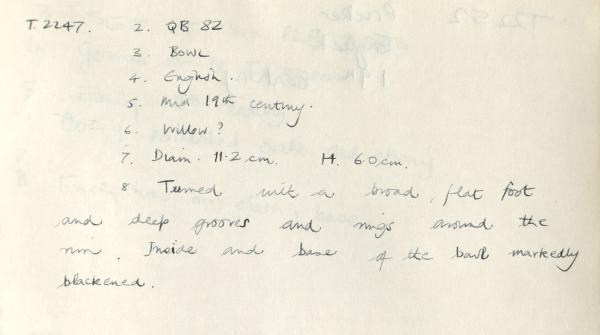 T.2247. 2. QB 82
3. Bowl
4. English.
5. Mid 19th century.
6. Willow?
7. Diam. 11.2 cm. H. 6.0 cm.
8 Turned with a broad, flat foot
and deep grooves and rings around the
rim. Inside and base of the bowl markedly
blackened.